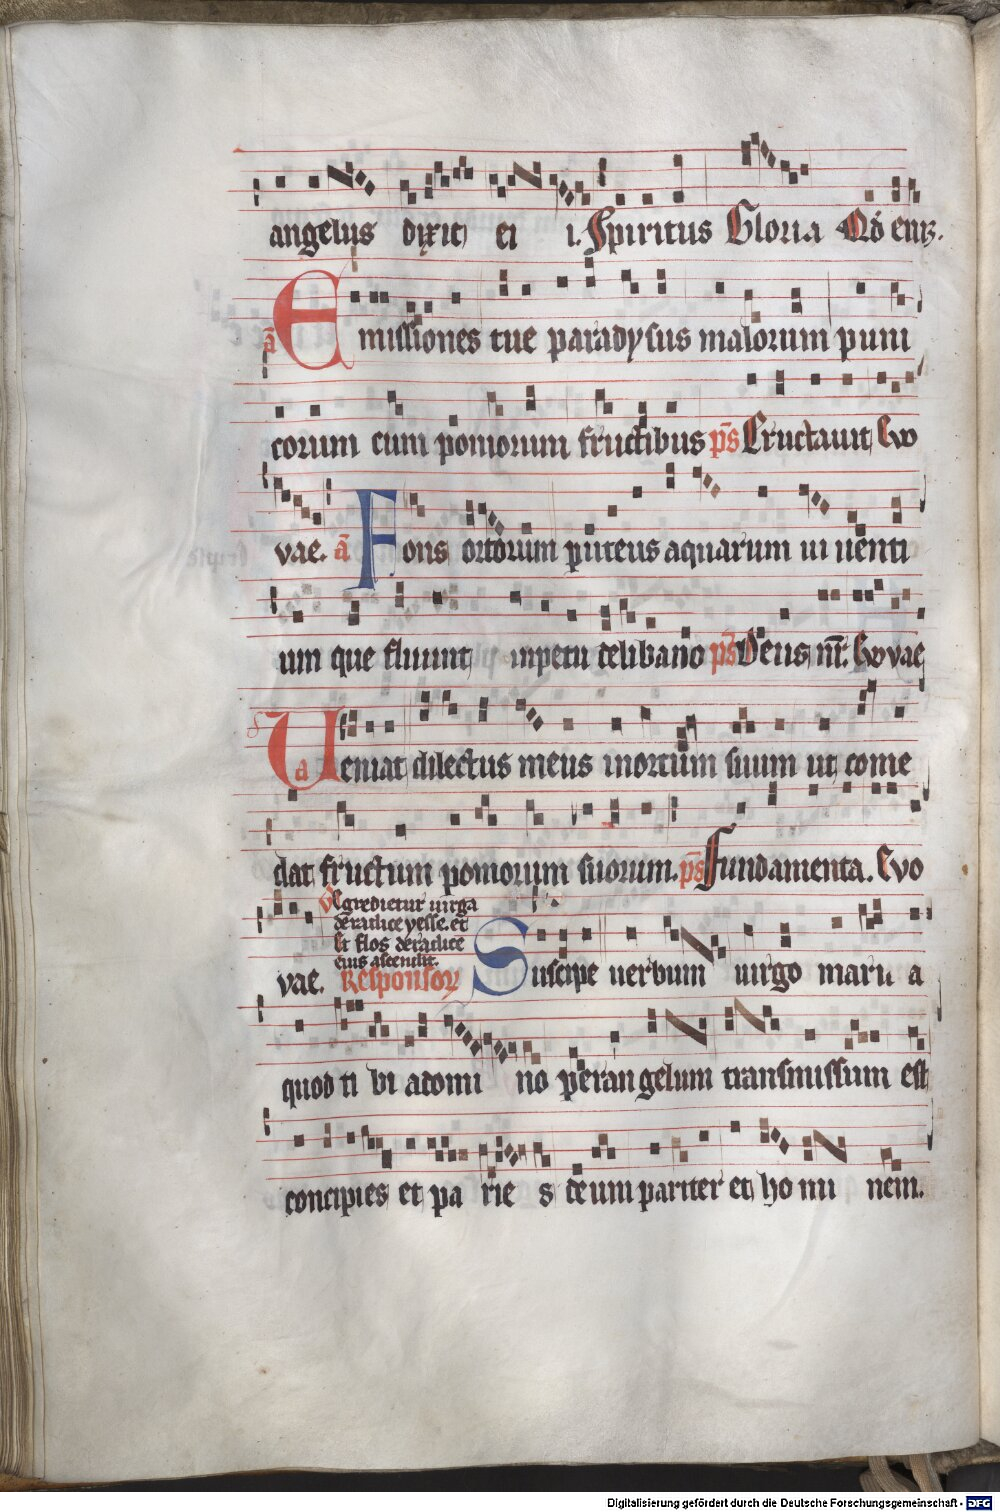 angelus dixit ei i. Spiritus Gloria Qd eniz.
ā Emissiones tue paradysus malorum puni
corum cum pomorum fructibus ps Eructauit Evo
vae. ā Fons ortorum puteus aquarum ui uenti
um que fluunt inpetu delibano ps Deus nr. Evovae
a Ueniat dilectus meus inortum suum ut come
dat fructum pomorum suorum. ps Fundamenta. Evo
Egredietur uirga
deradice yesse. et
flos deradice
eius ascendit.
vae. Responsory Suscipe uerbum uirgo mari a
quod ti bi adomi no perangelum transmissum est
concipies et pa rie s deum pariter et ho mi nem.
Digitalisierung gefördert durch die Deutsche Forschungsgemeinschaft - DFG